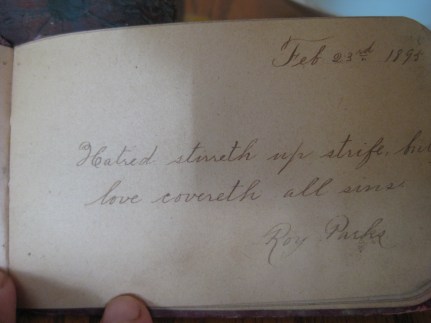 Feb 23rd 1895
Hatred stirreth up strife, but
love covereth all sins
Roy Parks